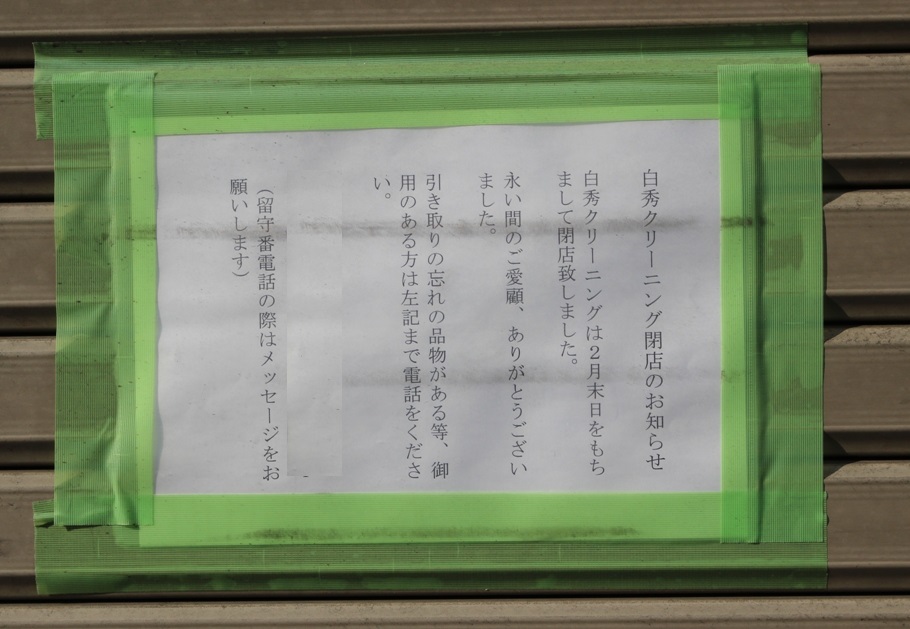 白秀クリーニング閉店のお知らせ
白秀クリーニングは２月末日をもち
まして閉店致しました。
永い間のご愛顧、ありがとうござい
ました。
引き取りの忘れの品物がある等、御
用のある方は左記まで電話をくださ
い。
（留守番電話の際はメッセージをお
願いします）